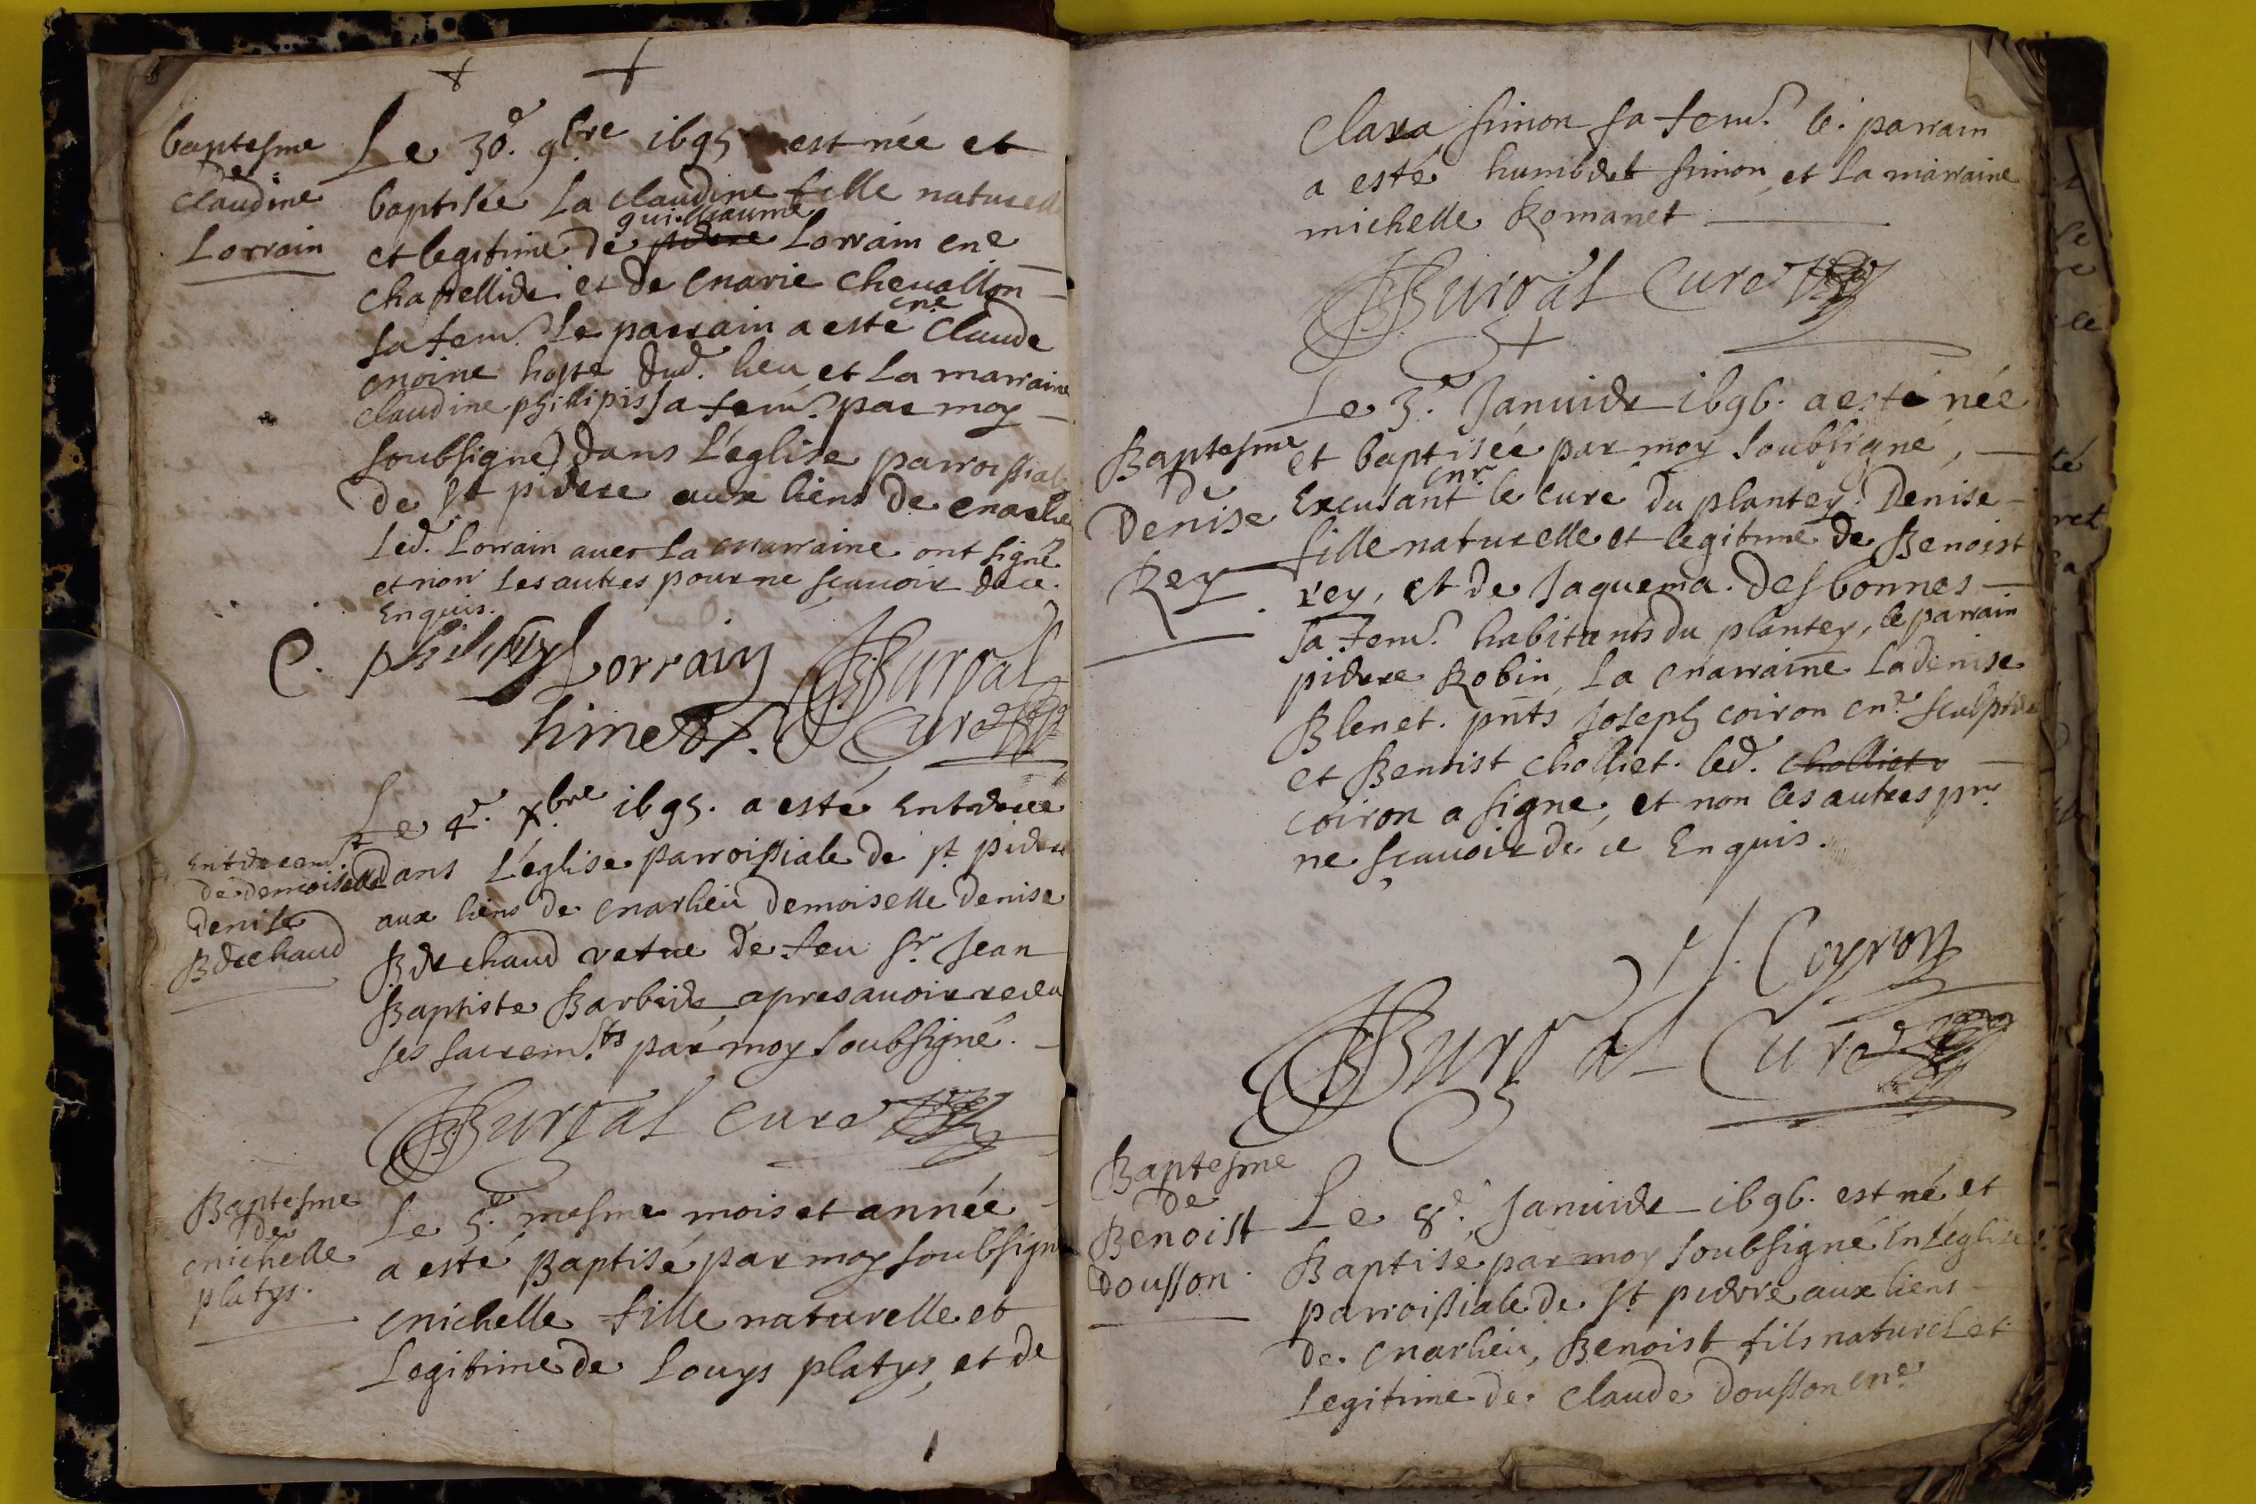 baptesme
de
claudine
Lorrain
Le 30.e 9bre 1695 est née et
baptisée la claudine fille naturelle
et legitime de guilliaume pierre Lorrain me
chapellier et de marie cheuallon
sa fem.e le parrain a esté me claude
moine hoste dud. lieu et la marraine
claudine philipis sa fem.e par moy
soubsigné dans l'église parroissiale
de st pierre aux liens de marlieu
led. Lorrain auec la marraine ont signé
et non les autres pour ne scauoir de ce
Enquis.
C. philipis Lorrain Burgat
curé
Enterrem.t
de demoiselle
denise
Berchaud
Le 4.e xbre 1695. a esté Enterrée
dans l'église parroissiale de st pierre
aux liens de marlieu demoiselle denise
Berchaud vefue de feu sr Jean
Baptiste Barbier apres auoir receu
ses sacrem.ts par moy soubsigné.
Burgat curé
Baptesme
de
michelle
platys.
Le 5.e mesme mois et année
a esté Baptisé par moy soubsigné
michelle fille naturelle et
Legitime de Louys platys, et de
clara simon sa fem.e le parrain
a esté humbert simon et la marraine
michelle Romanet
Burgat Curé
Baptesme
de
Denise
Rey
Le 3.e Januier 1696. a esté née
et baptisée par moy soubsigné,
Excusant mr le curé du plantey. Denise
fille naturelle et legitime de Benoist
rey, et de Jaquema desbonnes
sa fem.e habitants du plantey, le parrain
pierre Robin, la marraine la denise
Blenet. pnts Joseph coiron mr sculpteur
et Benoist cholliet. led. cholliet
coiron a signé, et non les autres pr
ne sçauoir de ce Enquis.
J. Coyron
Burgat Curé
Baptesme
de
Benoist
Dousson
Le 8.e Januier 1696. est né et
Baptisé par moy soubsigné En l'église
parroissiale de st pierre aux liens
de marlieu, Benoist fils naturel et
Legitime de claude Dousson me